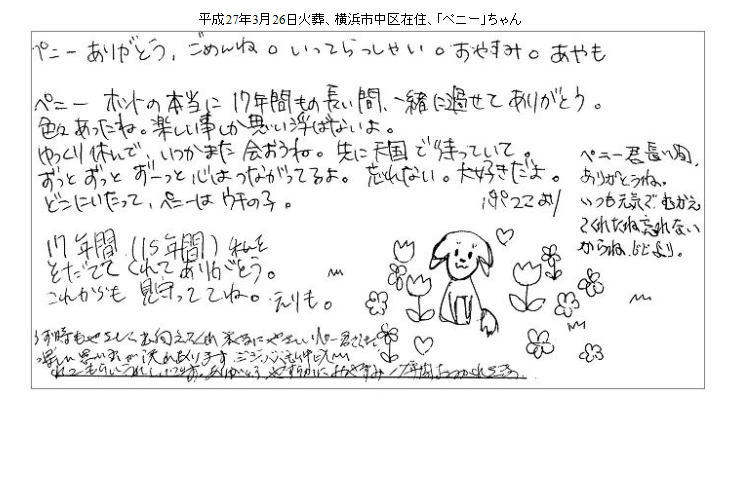 平成27年3月26日火葬、横浜市中区在住、「ペニー」ちゃん
ペニー ありがとう、ごめんね。いってらっしゃい。おやすみ。あやも
ペニー ホントの本当に 17年間もの長い間、一緒に過せて ありがとう。
色々あったね。楽しい事しか思い浮ばないよ。
ゆっくり休んで、いつかまた会おうね。先に天国で待っていて。
ずっと ずっと ずーっと心はつながってるよ。忘れない。大好きだよ。
どこにいたって、ペニーは ウチの子。
より
ペニー君長い間、
ありがとうね。
いつも元気でむかえ
てくれたね忘れない
からね。より。
17年間（15年間）私を
そだてて くれて ありがとう。
これからも 見守っててね。えりも。